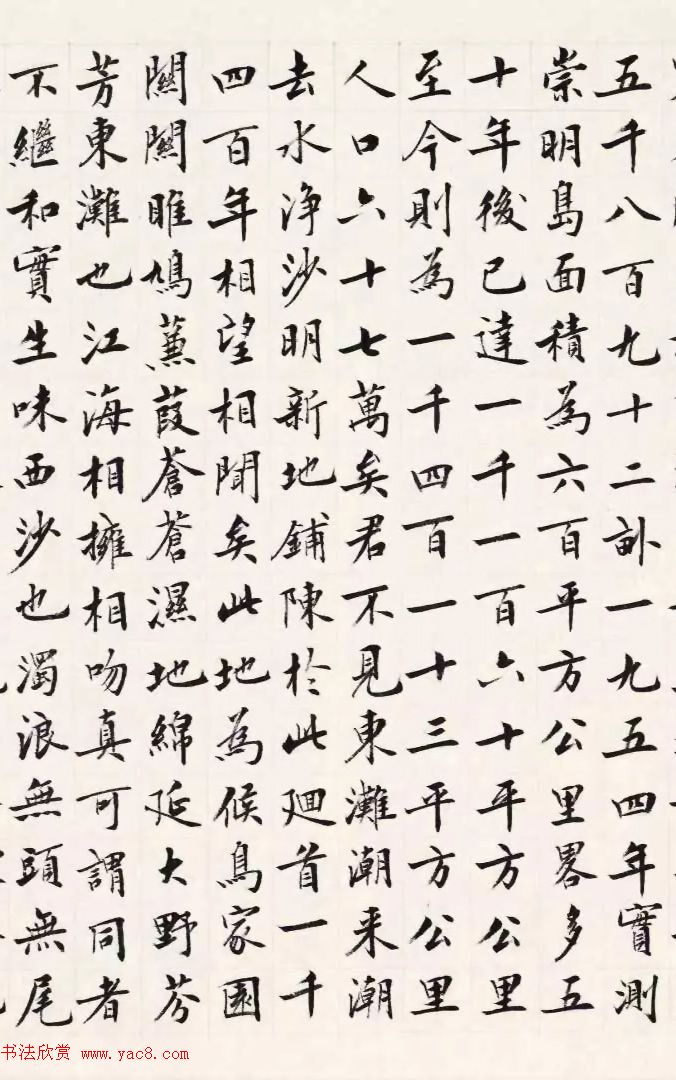 五千八百九十二畝一九五四年實測
崇明島面積為六百平方公里畧多五
十年後已達一千一百六十平方公里
至今則為一千四百一十三平方公里
人口六十七萬矣君不見東灘潮来潮
去水淨沙明新地鋪陳於此廻首一千
四百年相望相聞矣此地為候鳥家園
關關雎鳩蒹葭蒼蒼濕地綿延大野芬
芳東灘也江海相擁相吻真可謂同者
不繼和實生味西沙也濁浪無頭無尾
书法欣赏 www.yac8.com